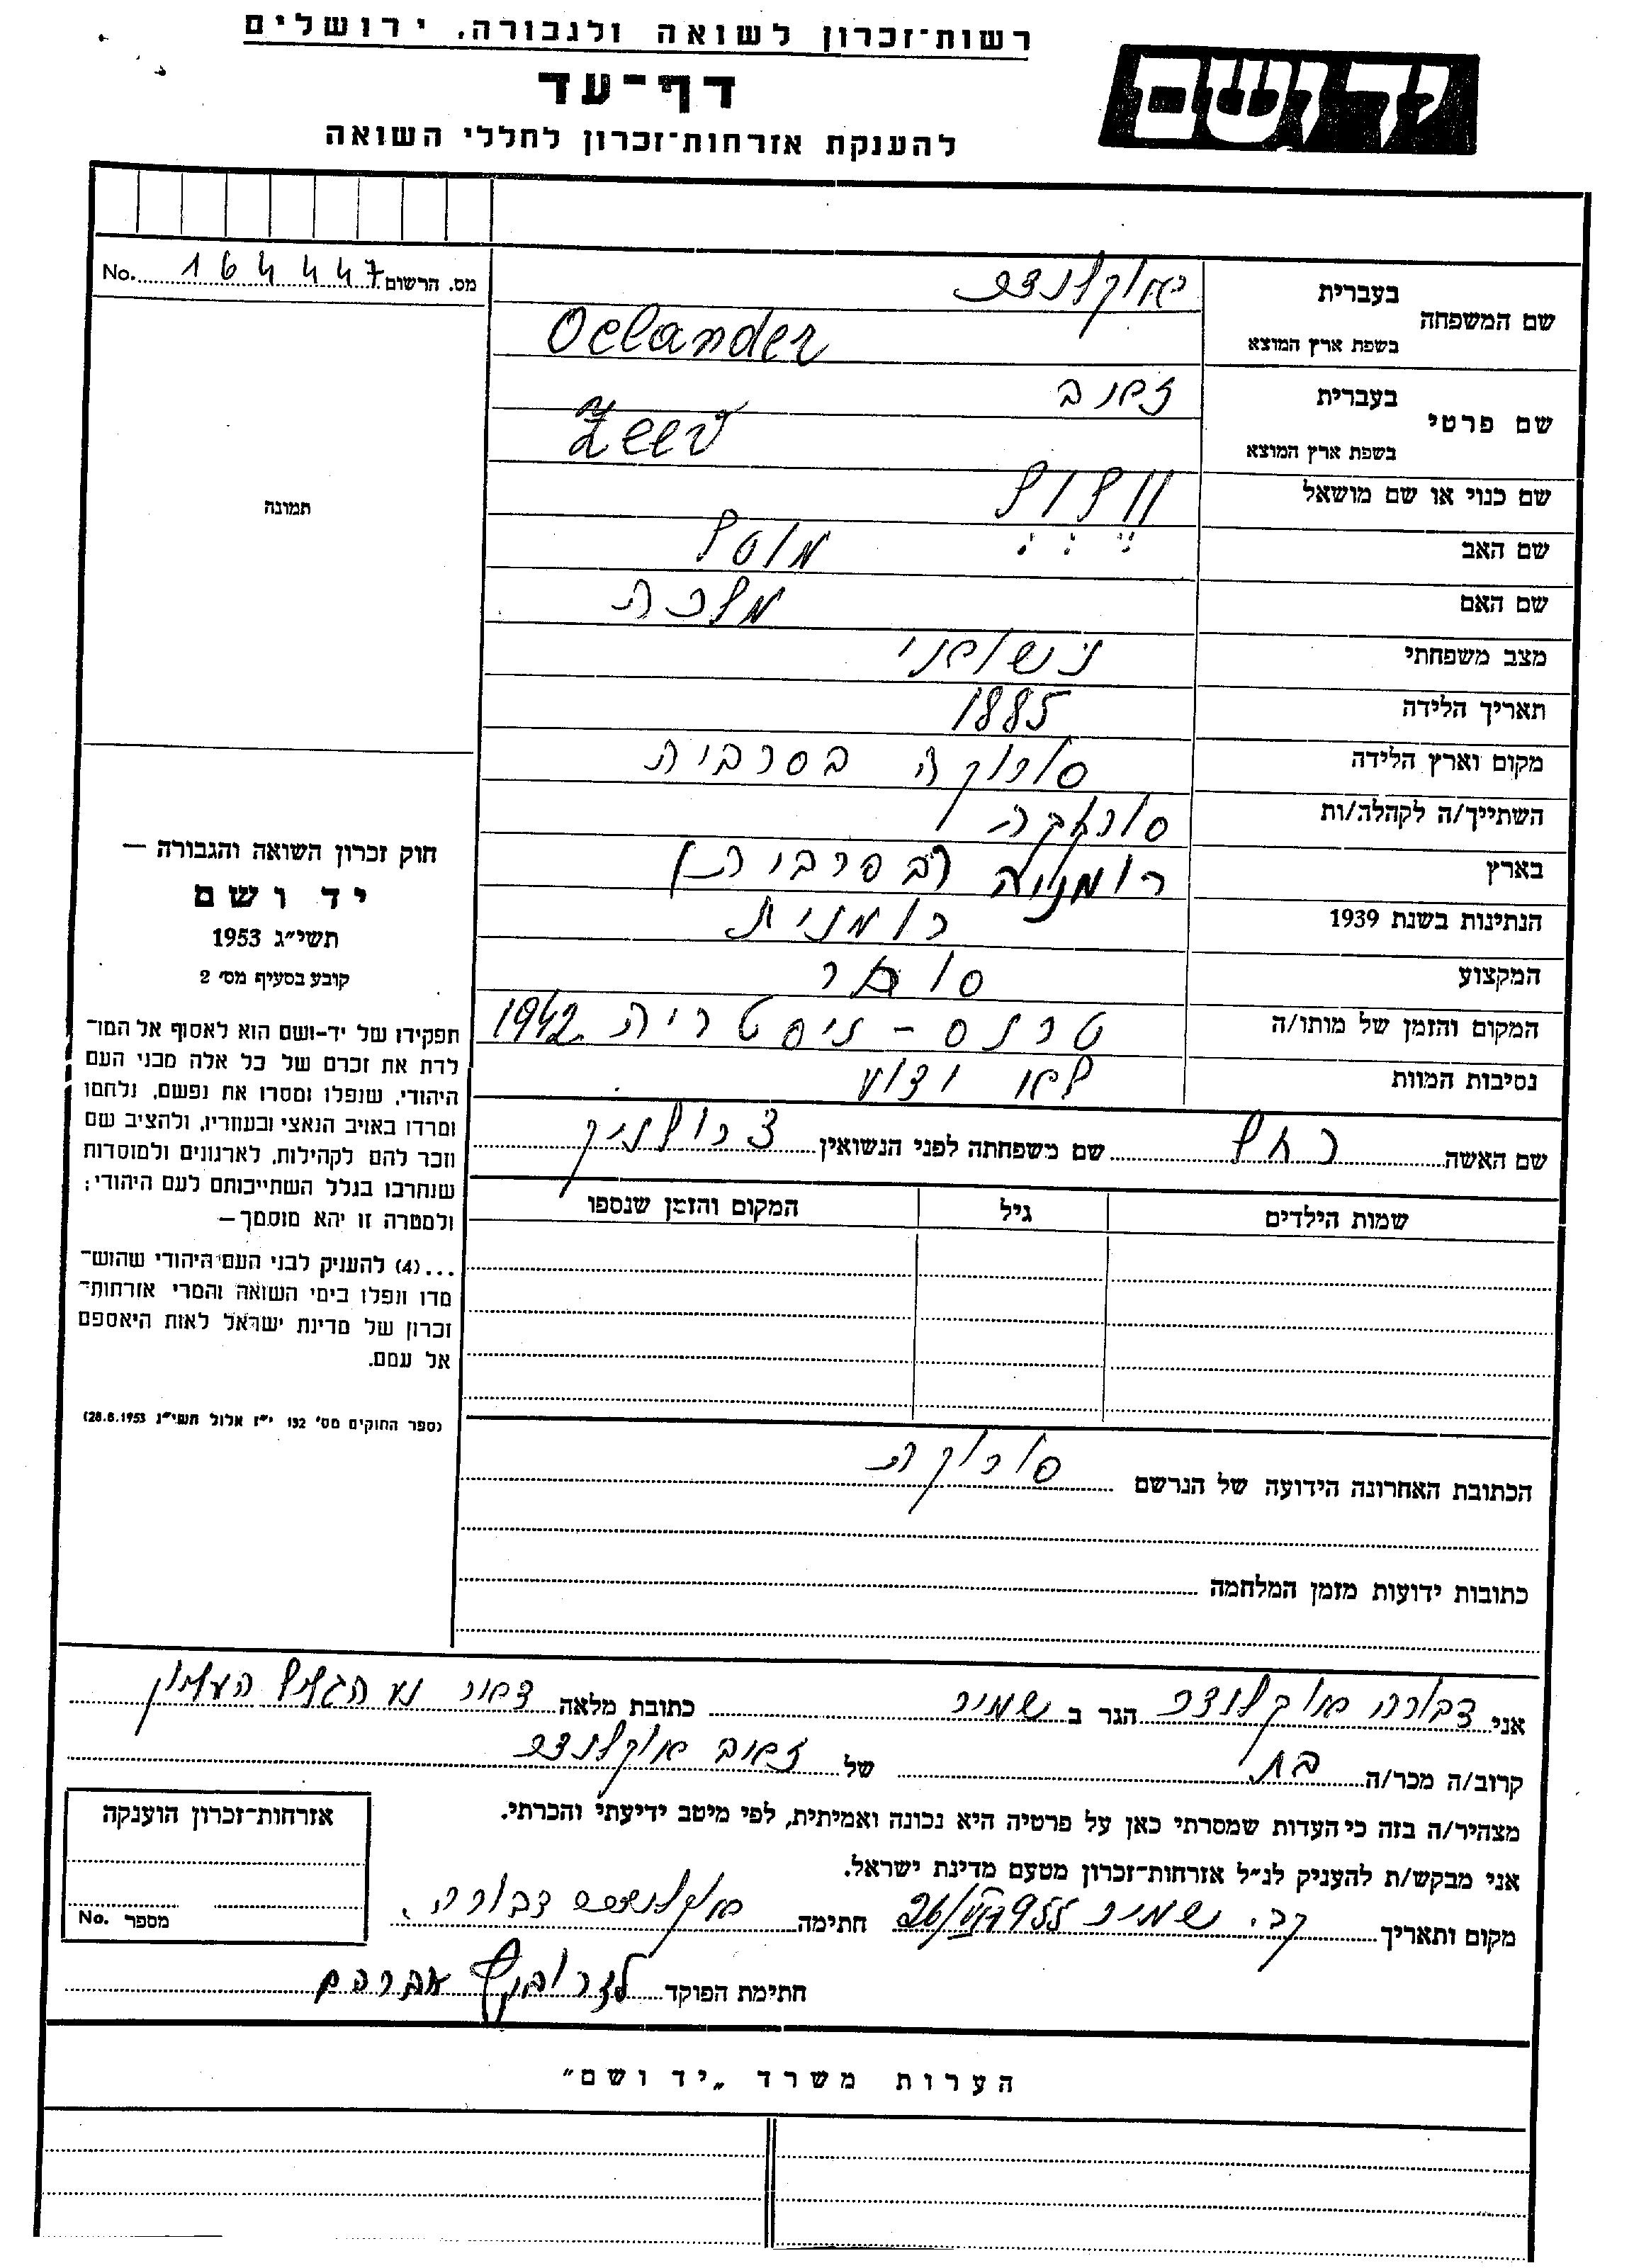 רשות־זכרון לשואה ולגבורה, ירושלים
דף־עד
להענקת אזרחות־זכרון לחללי השואה
יד ושם
מס. הרשום 164447 No.
שם המשפחה
בעברית אוקלנדר
בשפת ארץ המוצא Oclander
שם פרטי
בעברית זאב
בשפת ארץ המוצא Zeev
שם כנוי או שם מושאל וולול
שם האב מוטל
שם האם מלכה
מצב משפחתי נישואי
תאריך הלידה 1885
מקום וארץ הלידה סורוקה בסרביה
השתייך/ה לקהלה/ות סורוקה
בארץ רומניה (בסרביה)
הנתינות בשנת 1939 רומנית
המקצוע סוחר
המקום והזמן של מותו/ה טרנס - ניסטריה 1942
נסיבות המוות לא ידוע
שם האשה רחל שם משפחתה לפני הנשואין
שמות הילדים גיל המקום והזמן שנספו
הכתובת האחרונה הידועה של הנרשם סורוקה
כתובות ידועות מזמן המלחמה
תמונה
חוק זכרון השואה והגבורה —
יד ושם
תשי״ג 1953
קובע בסעיף מס׳ 2
תפקידו של יד-ושם הוא לאסוף אל המו־
לדת את זכרם של כל אלה מבני העם
היהודי, שנפלו ומסרו את נפשם, נלחמו
ומרדו באויב הנאצי ובעוזריו, ולהציב שם
וזכר להם לקהילות, לארגונים ולמוסדות
שנחרבו בגלל השתייכותם לעם היהודי;
ולמטרה זו יהא מוסמך —
...(4) להעניק לבני העם היהודי שהוש־
מדו ונפלו בימי השואה והמרי אזרחות־
זכרון של מדינת ישראל לאות היאספם
אל עמם.
(ספר החוקים מס׳ 132 י״ז אלול תשי״ג 28.8.1953)
אני דבורה אוקלנדר הגר ב שמיר כתובת מלאה דאר נע הגליל העליון
קרוב/ה מכר/ה בת של זאב אוקלנדר
מצהיר/ה בזה כי העדות שמסרתי כאן על פרטיה היא נכונה ואמיתית, לפי מיטב ידיעתי והכרתי.
אני מבקש/ת להעניק לנ״ל אזרחות־זכרון מטעם מדינת ישראל.
מקום ותאריך קב. שמיר חתימה אוקלנדר דבורה
חתימת הפוקד אברהם
אזרחות־זכרון הוענקה
מספר No.
הערות משרד „יד ושם״